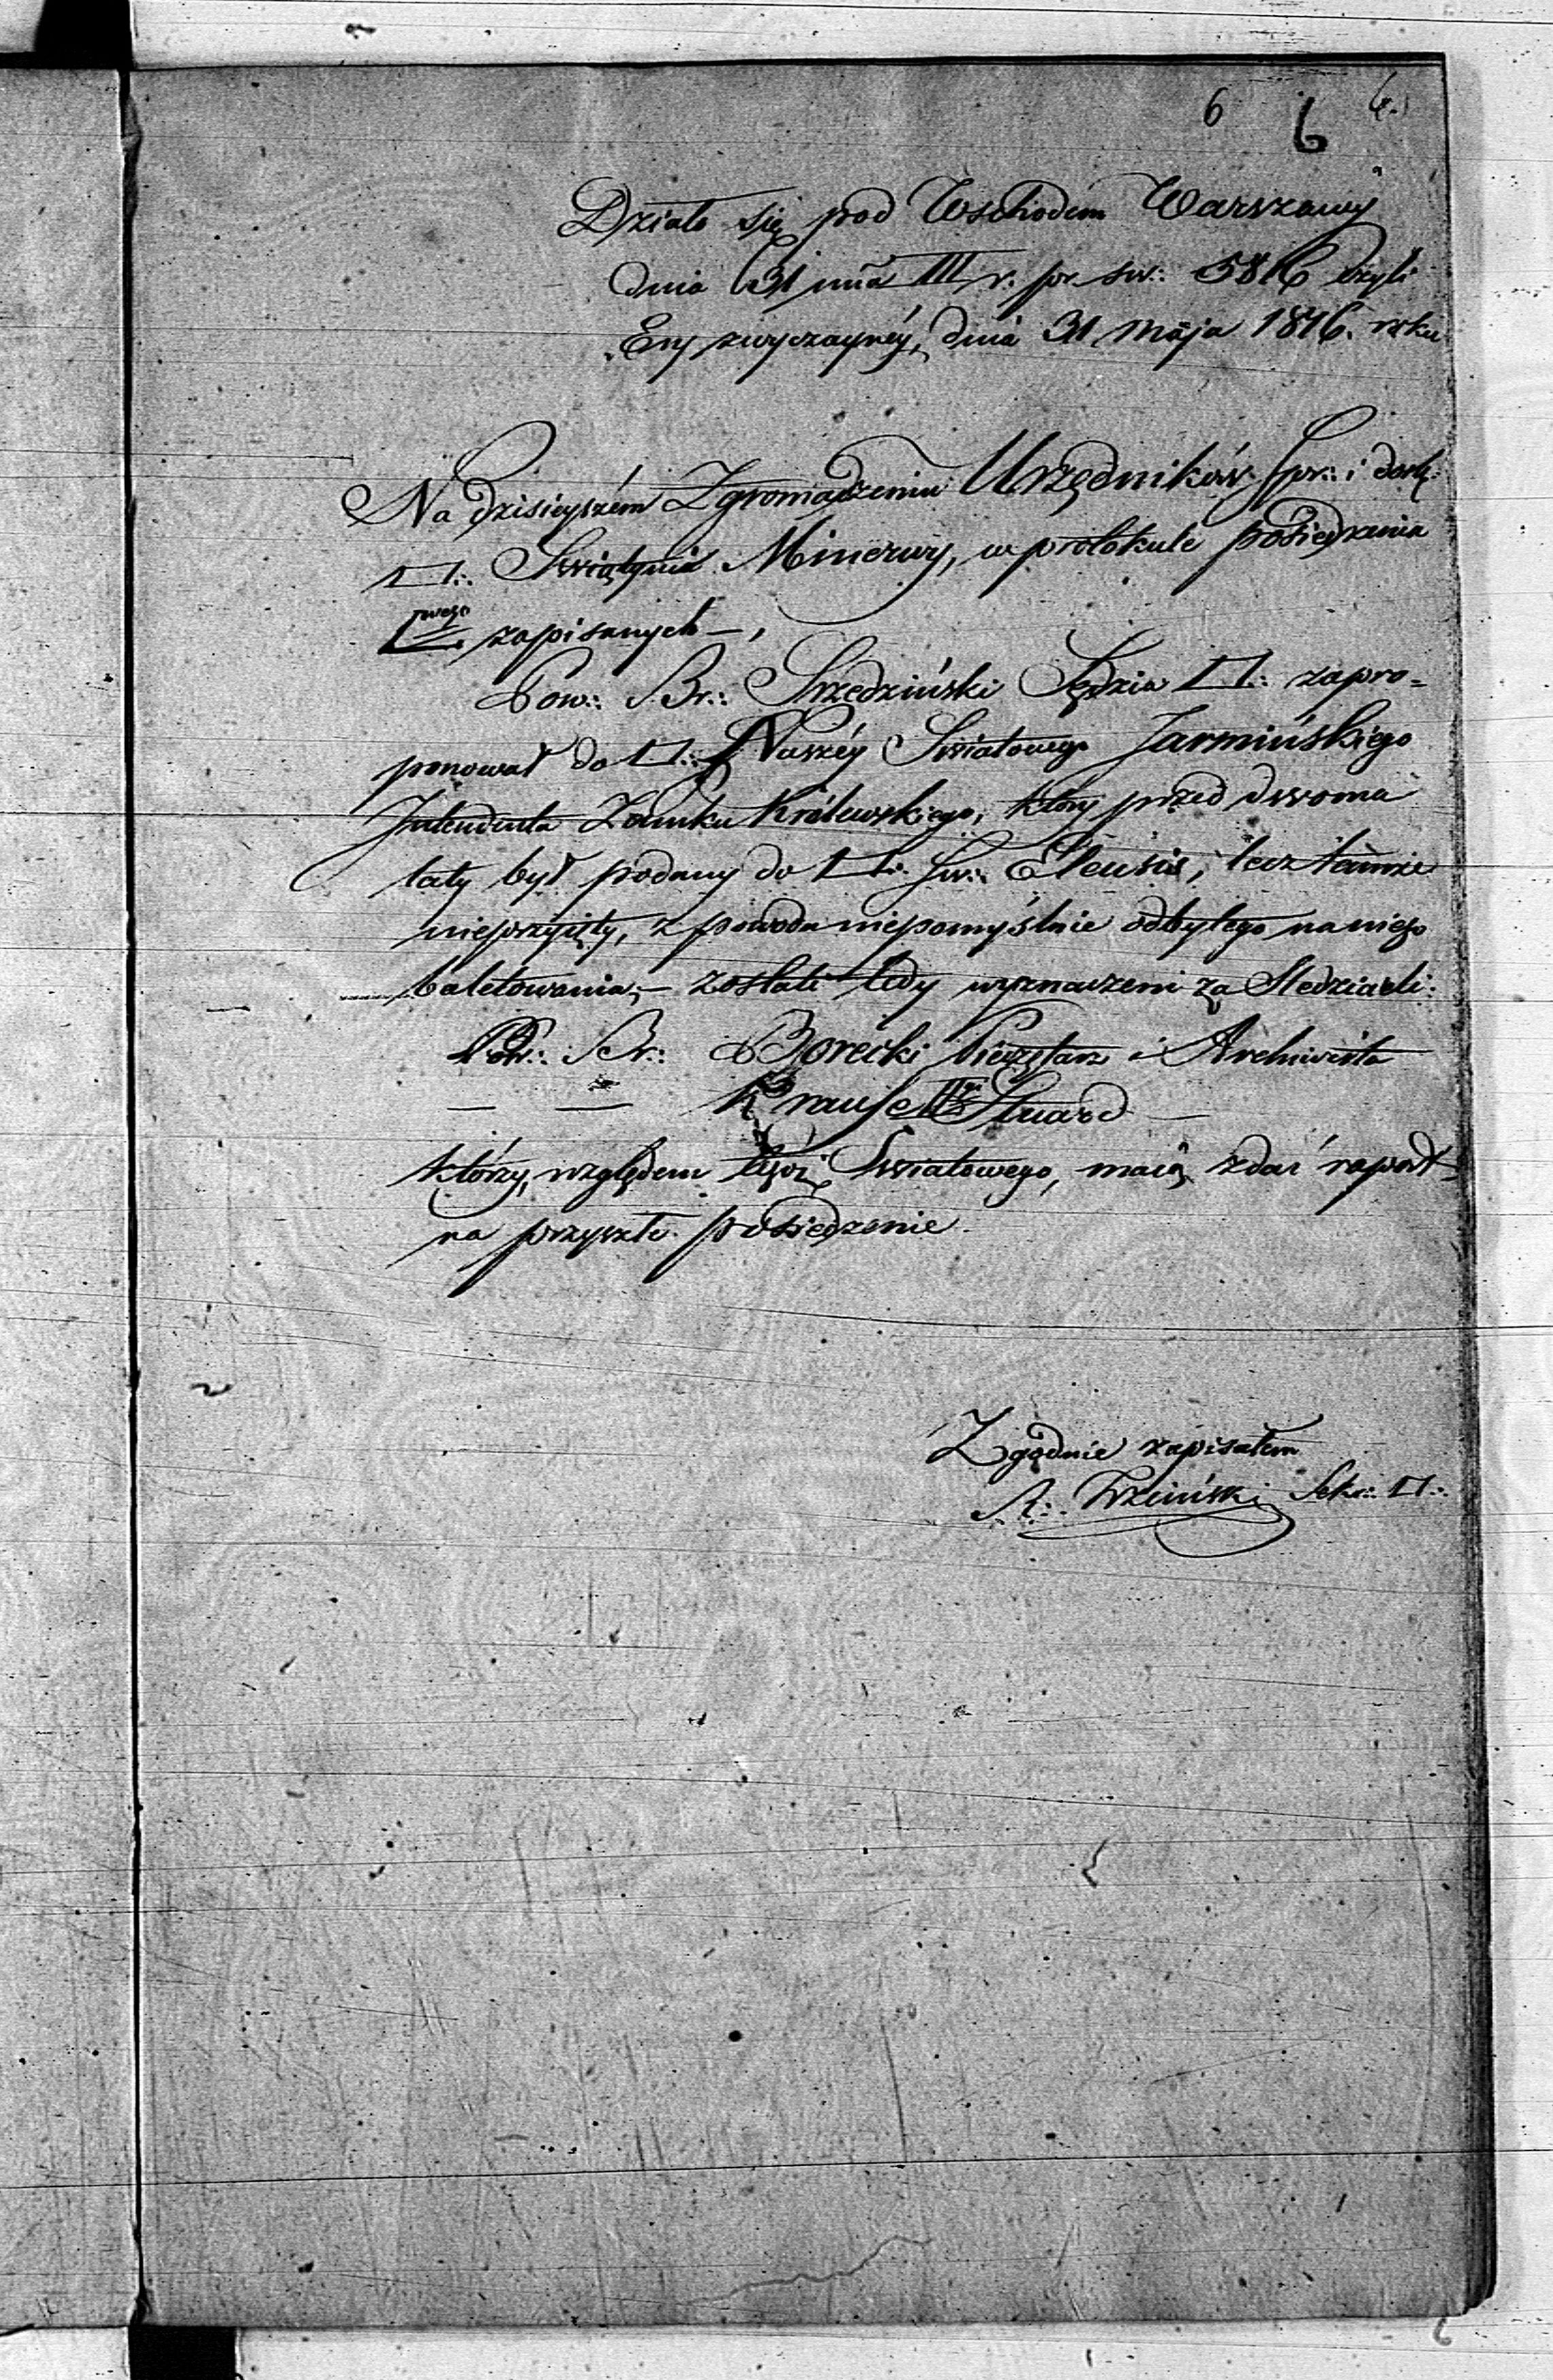 6 6 6.
Działo się pod Wschodem Warszawy
dnia 31 mca III r. pr. św∴ 5816 czyli
Ery zwyczayney, dnia 31 Maja 1816. roku
Na dzisieyszém Zgromadzeniu Urzędników spr∴ i dosk∴
□∴ Swiątynia Minerwy, w protokule posiedzenia
Iwszego zapisanych —,
Pow∴ Br∴ Strzedziński Sędzia □∴ zapro=
ponował do □∴ Naszéy Swiatowego Jarmińskiego
Intendenta Zamku Królewskiego, który przed dwoma
laty był podany do □∴ św∴ Eleusis, lecz tamże
nieprzyięty, z powodu niepomyślnie odbytego na niego
baletowania; — zostali tedy wyznaczeni za Sledzicieli:
Pow∴ Br∴ Borecki Pieczętarz i Archiwista
— — Krause IIgi Stuard —
którzy, względem tegoż Swiatowego, maią zdać raport
na przyszłe posiedzenie.
Zgodnie zapisałem
A∴ Sekr∴ □∴
6